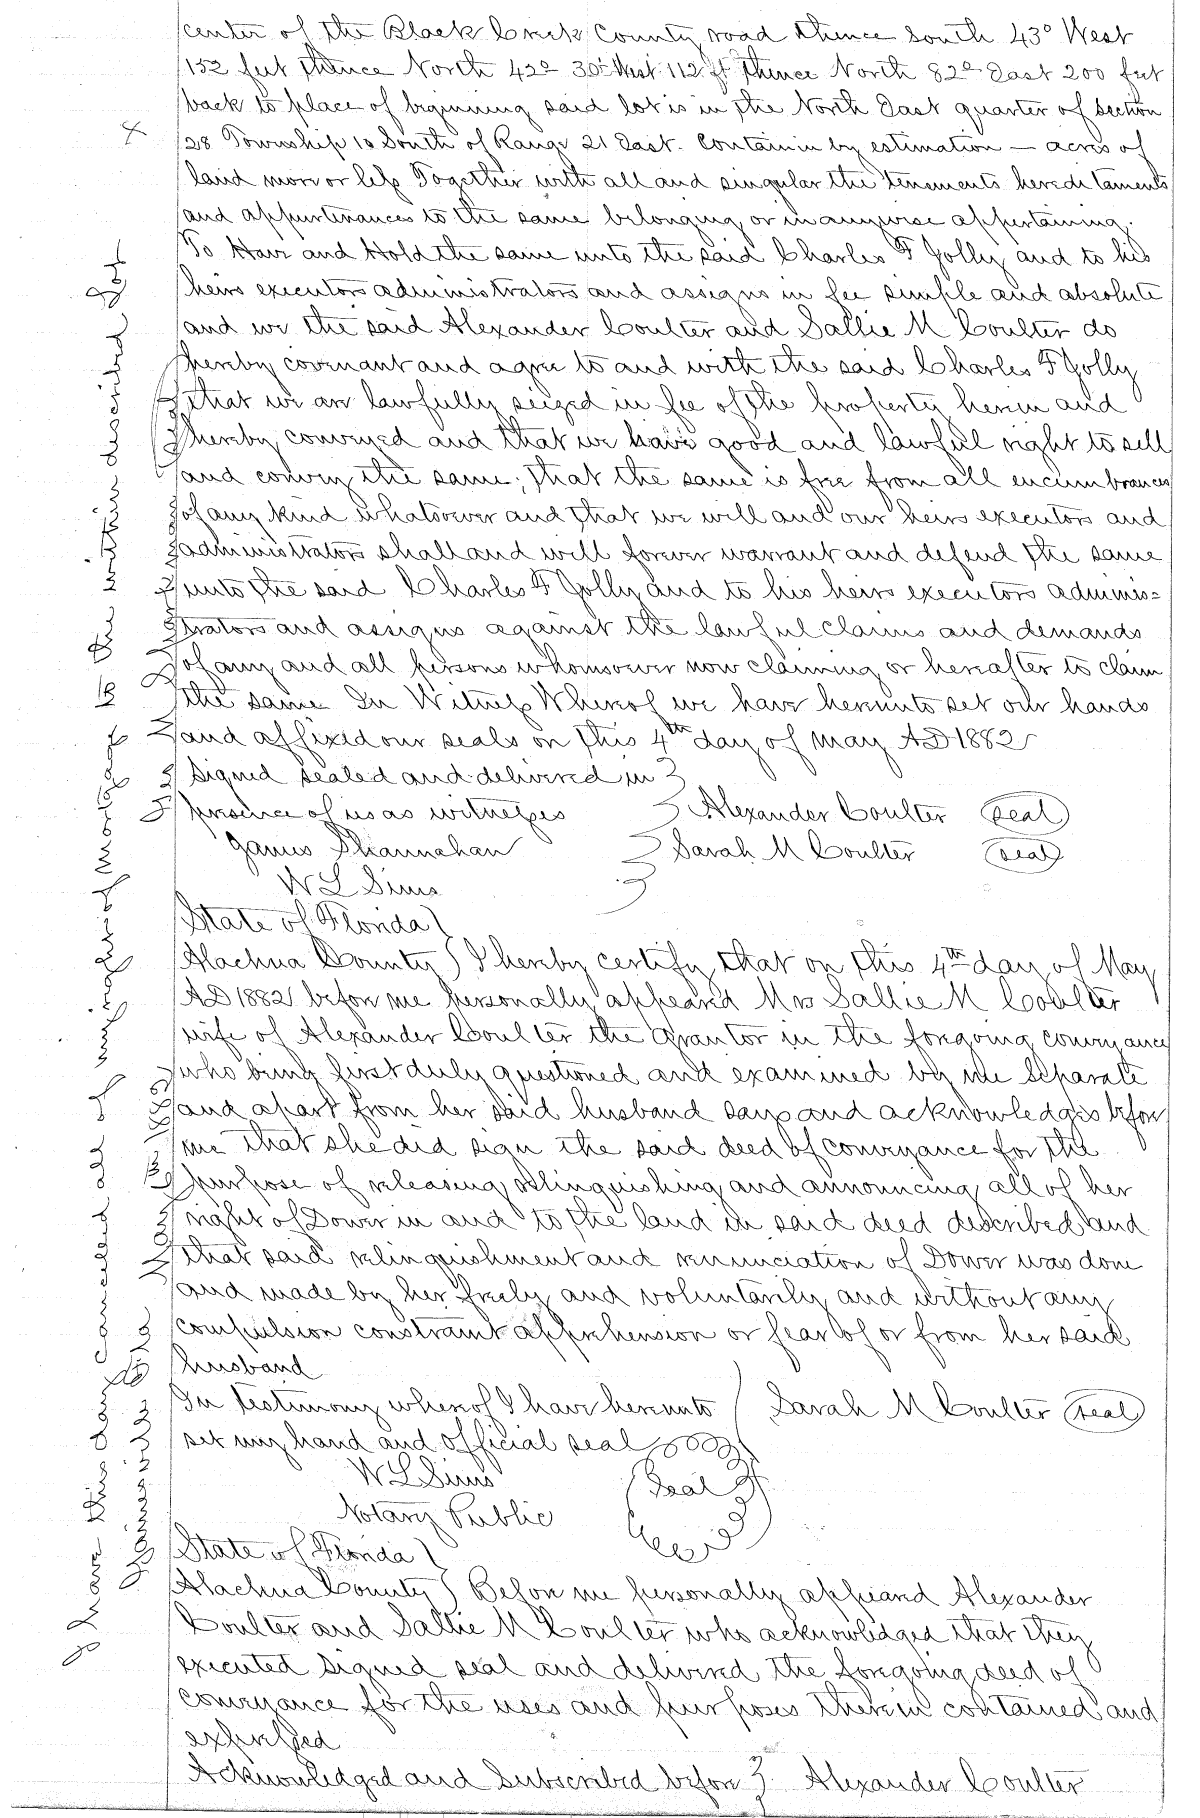 center of the Black Creek County road thence South 43° West
152 feet thence North 42° 30' West 112 ft thence North 82° East 200 feet
back to place of beginning said lot is in the North East quarter of section
28 Township 10 South of Range 21 East. Contain in by estimation — acres of
land more or less Together with all and singular the tenements hereditaments
and appurtenances to the same belonging or in anywise appertaining.
To Have and Hold the same unto the said Charles F Jolly and to his
heirs executors administrators and assigns in fee simple and absolute
and we the said Alexander Coulter and Sallie M Coulter do
hereby covenant and agree to and with the said Charles F Jolly
that we are lawfully seized in fee of the property herein and
hereby conveyed and that we have good and lawful right to sell
and convey the same; that the same is free from all encumbrances
of any kind whatsoever and that we will and our heirs executors and
administrators shall and will forever warrant and defend the same
unto the said Charles F Jolly and to his heirs executors adminis=
trators and assigns against the lawful claims and demands
of any and all persons whomsoever now claiming or hereafter to claim
the same In Witness Whereof we have hereunto set our hands
and affixed our seals on this 4th day of May AD 1882
Signed sealed and delivered in
presence of us as witnesses Alexander Coulter (seal)
James Shannahan Sarah M Coulter (seal)
W L Sims
State of Florida
Alachua County I hereby certify that on this 4th day of May
AD 1882 before me personally appeared Mrs Sallie M Coulter
wife of Alexander Coulter the grantor in the foregoing conveyance
who being first duly questioned and examined by me Separate
and apart from her said husband says and acknowledges before
me that she did sign the said deed of conveyance for the
purpose of releasing relinquishing and announcing all of her
right of Dower in and to the land in said deed described and
that said relinquishment and renunciation of Dower was done
and made by her freely and voluntarily and without any
compulsion constraint apprehension or fear of or from her said
husband
In testimony whereof I have hereunto Sarah M Coulter (seal)
set my hand and official seal
W L Sims (Seal)
Notary Public
State of Florida
Alachua County Before me personally appeared Alexander
Coulter and Sallie M Coulter who acknowledged that they
executed signed seal and delivered the foregoing deed of
conveyance for the uses and purposes therein contained and
expressed
Acknowledged and Subscribed before Alexander Coulter